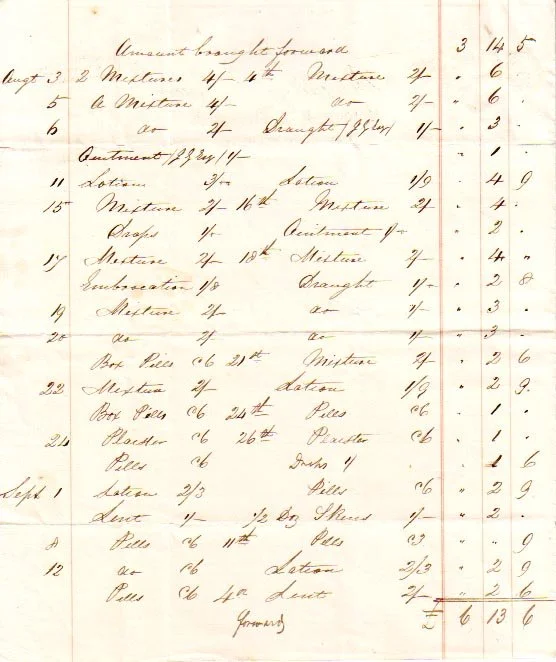 Amount brought forward 3 14 5
Augt 3 2 Mixtures 4/- 4th Mixture 2/- " 6 .
5 A Mixture 4/- do 2/- " 6 .
6 do 2/- Draught /J J Esq/ 1/- " 3 .
Ointment /J J Esq/ 1/- " 1 .
11 Lotion 3/- Lotion 1/9 . 4 9
15 Mixture 2/- 16th Mixture 2/- . 4 .
Drops 1/- Ointment 1/- " 2 .
17 Mixture 2/- 18th Mixture 2/- " 4 "
Embrocation 1/8 Draught 1/- " 2 8
19 Mixture 2/- do 1/- " 3 .
20 do 2/- do 1/- " 3 .
Box Pills c6 21st Mixture 2/- " 2 6
22 Mixture 2/- Lotion 1/9 " 2 9
Box Pills c6 24th Pills c6 . 1 .
24 Plaister c6 26th Plaister c6 . 1 .
Pills c6 1/ . 1 6
Sept 1 Lotion 2/3 Pills c6 " 2 9
Lint 1/- 1/2 Doz Skins 1/- " 2 .
8 Pills c6 11th Pills c3 " " 9
12 do c6 Lotion 2/3 " 2 9
Pills c6 Lint 2/- " 2 6
forward £ 6 13 6